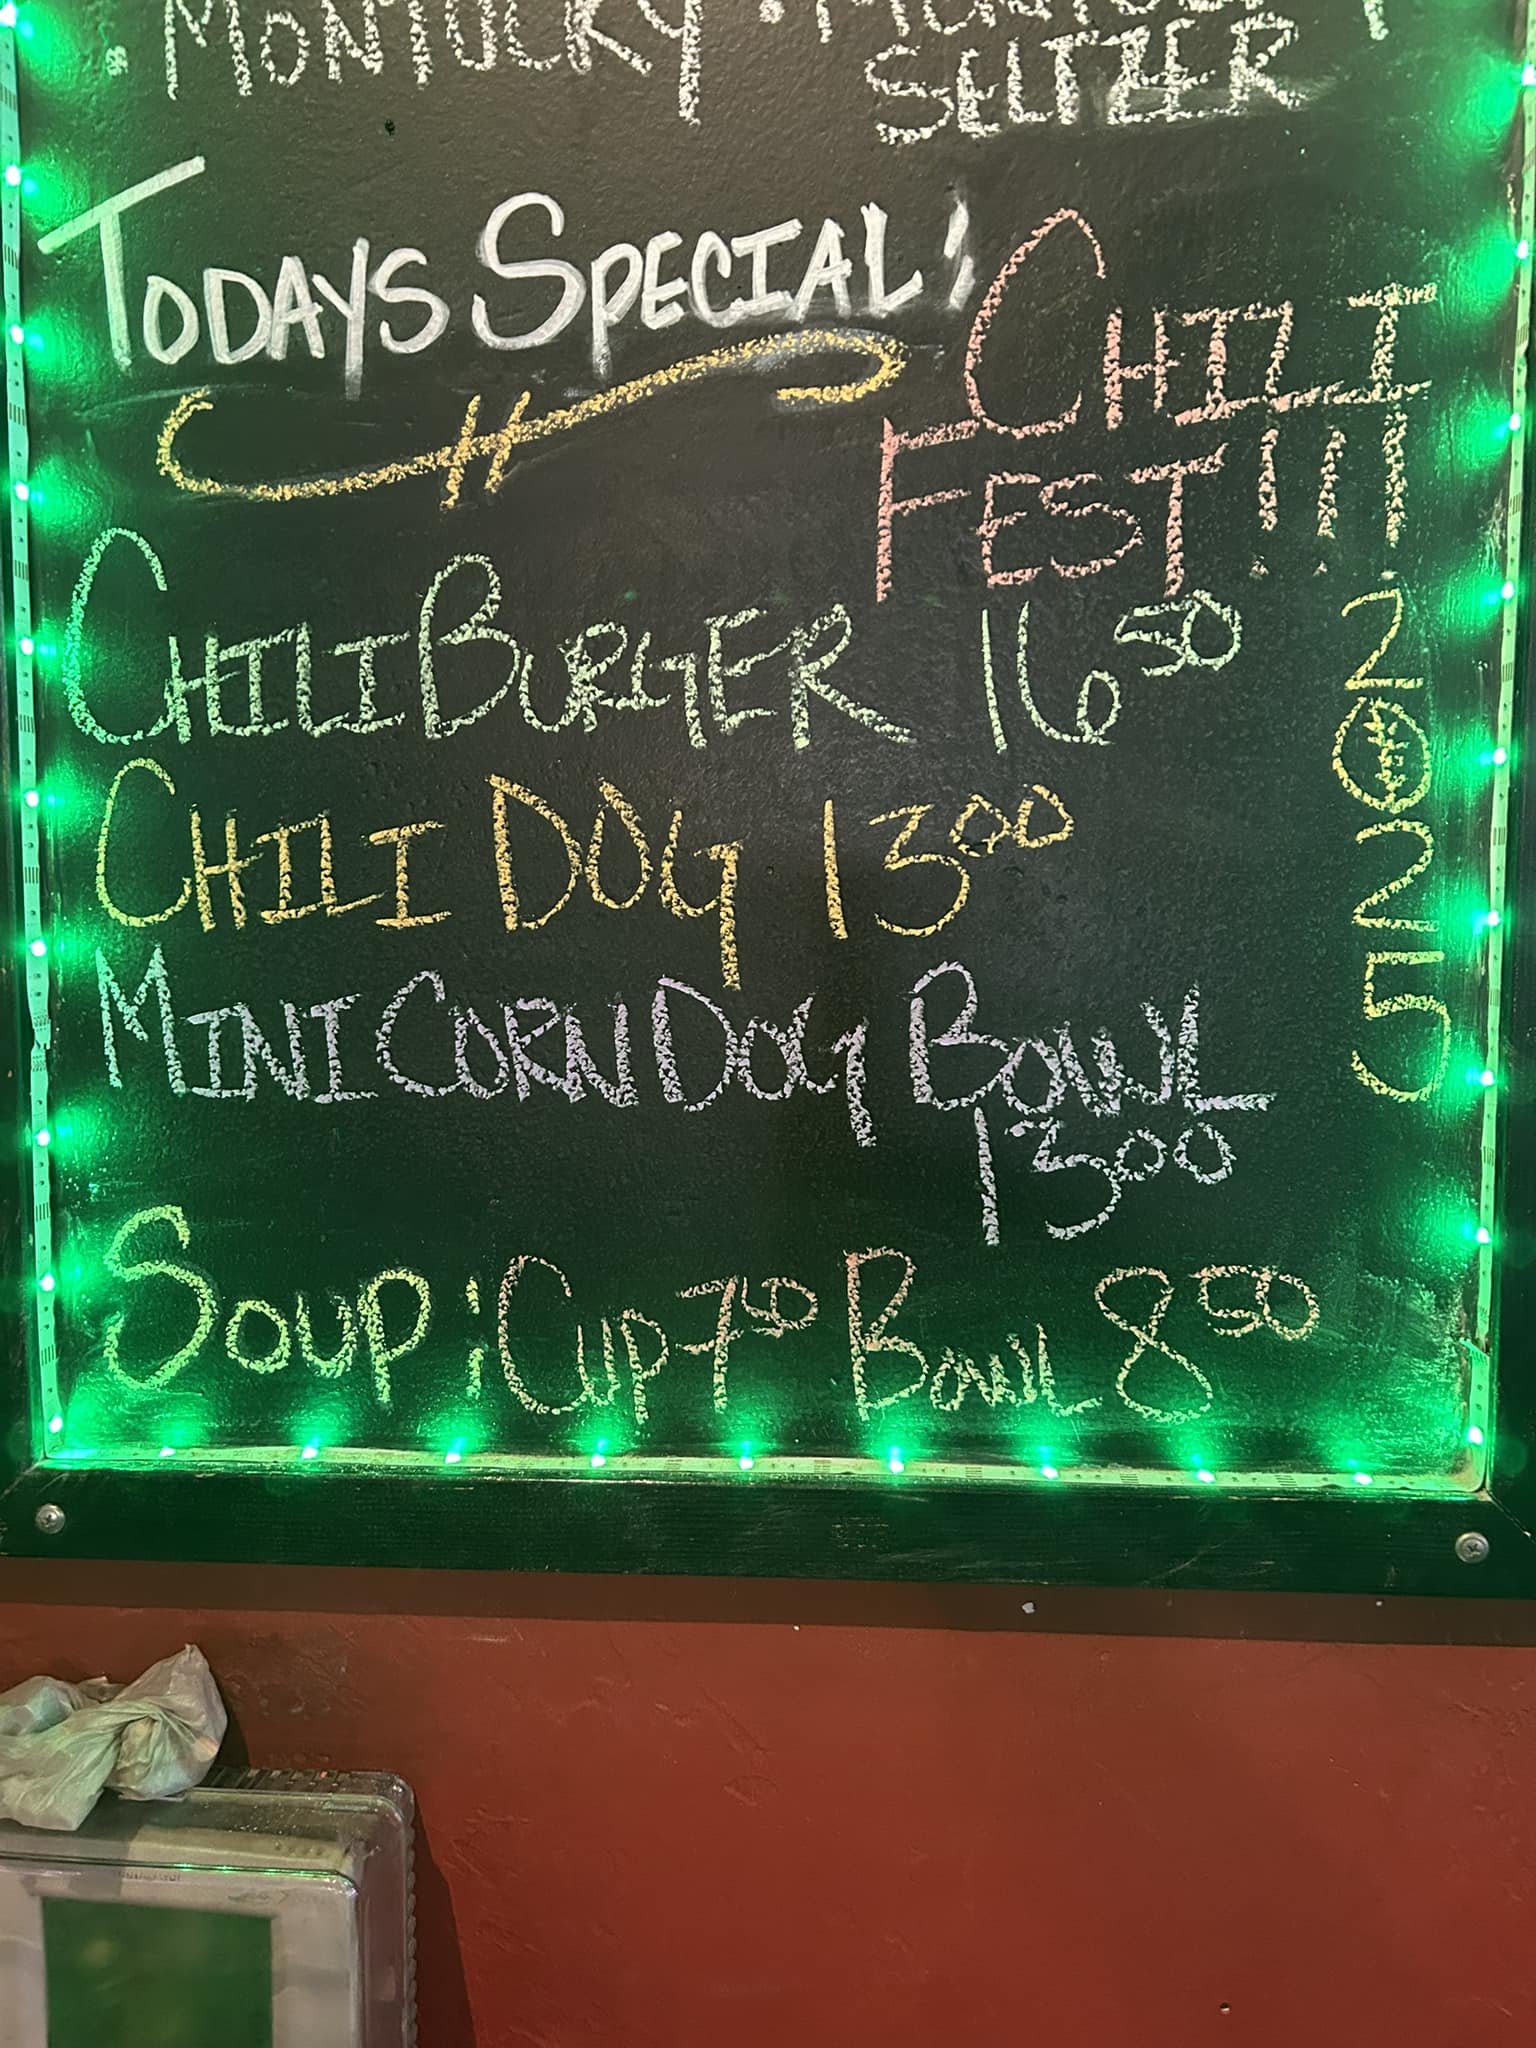 . MONTUCKY . MONTUCKY
SELTZER
TODAYS SPECIAL: CHILI
FEST!!!
CHILI BURGER 16 50
CHILI DOG 13 00
MINI CORN DOG BOWL
13 00
SOUP: CUP 7 50 BOWL 8 50
2025